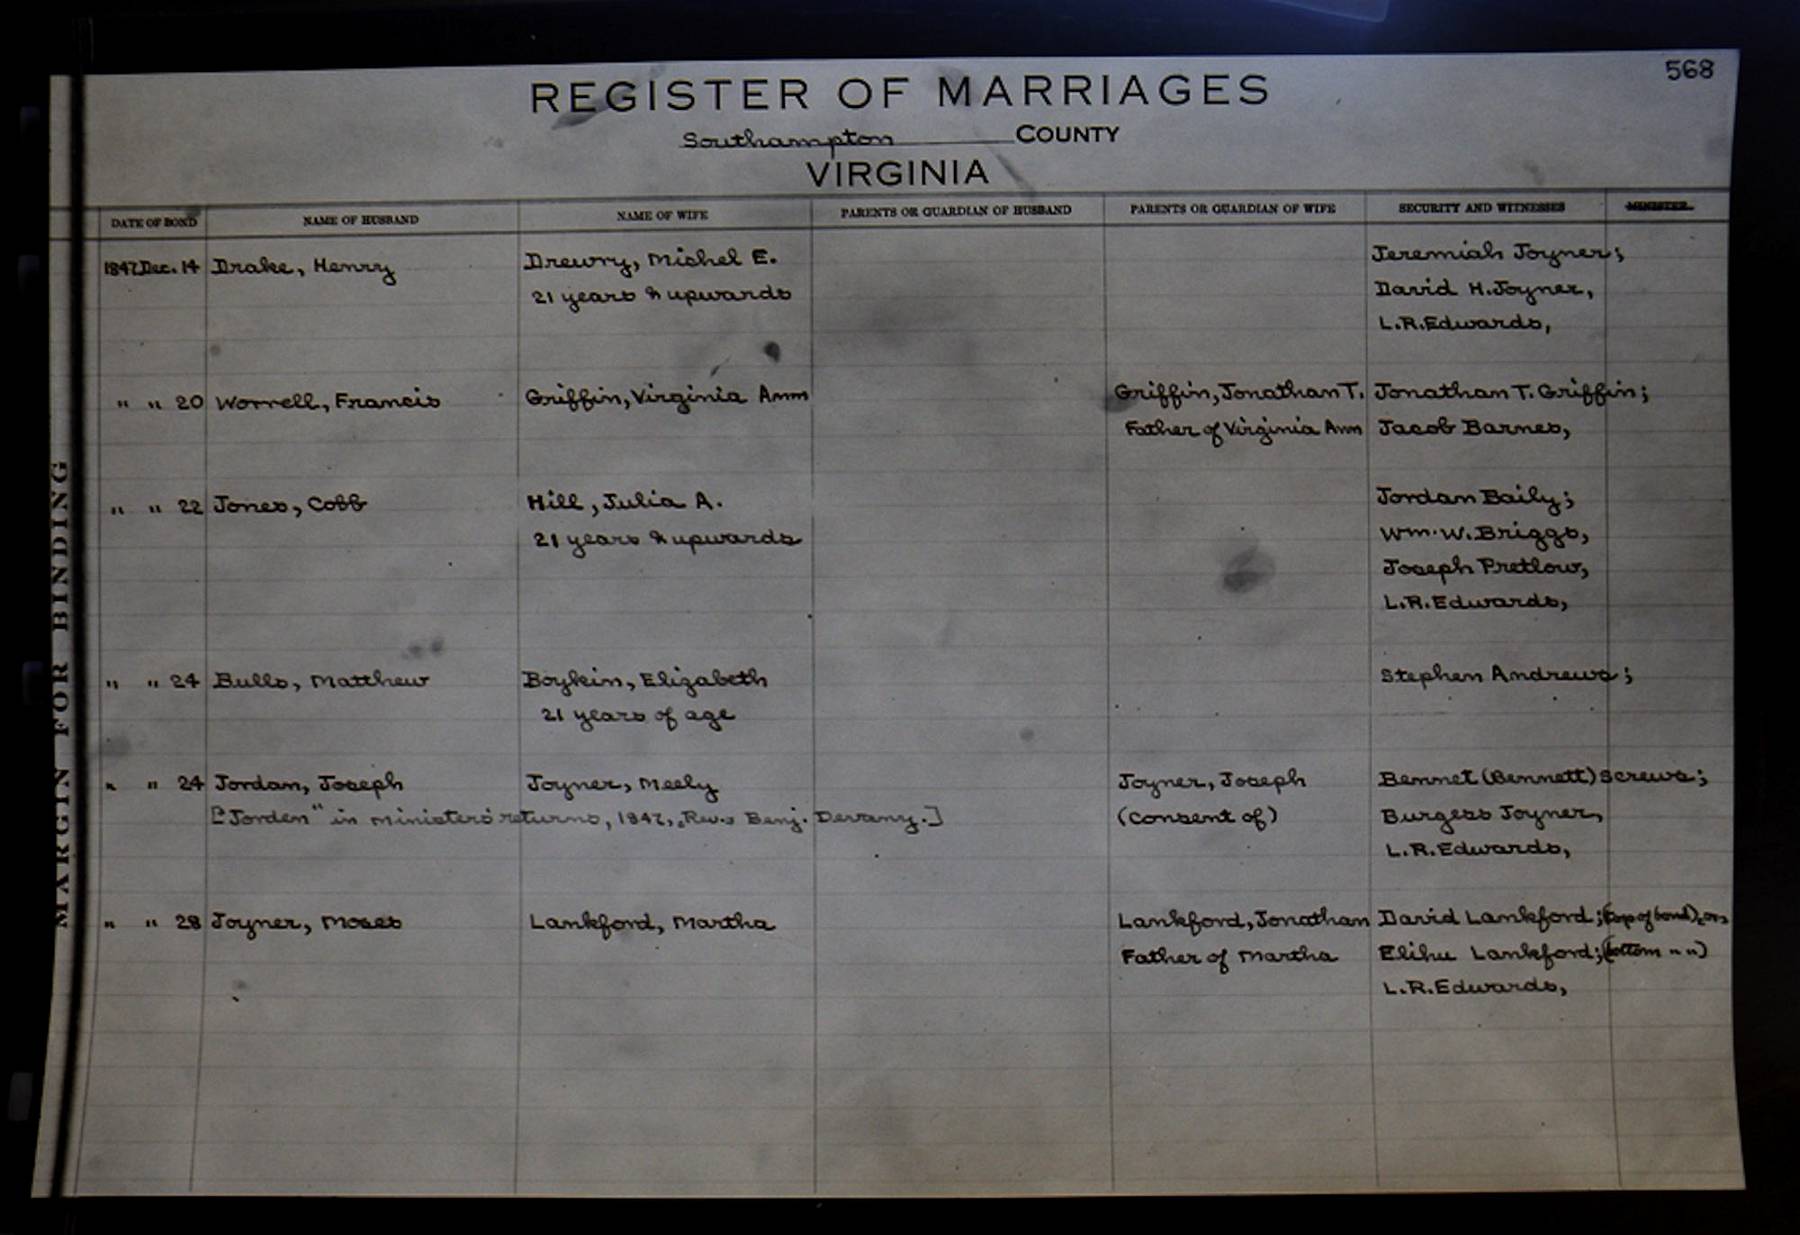 568
REGISTER OF MARRIAGES
Southampton COUNTY
VIRGINIA
DATE OF BOND NAME OF HUSBAND NAME OF WIFE PARENTS OR GUARDIAN OF HUSBAND PARENTS OR GUARDIAN OF WIFE SECURITY AND WITNESSES MINISTER
1847 Dec. 14 Drake, Henry Drewry, Michel E. Jeremiah Joyner;
21 years & upwards David H. Joyner,
L.R. Edwards,
" " 20 Worrell, Francis Griffin, Virginia Ann Griffin, Jonathan T. Jonathan T. Griffin;
Father of Virginia Ann Jacob Barnes,
" " 22 Jones, Cobb Hill, Julia A. Jordan Baily;
21 years & upwards Wm. W. Briggs,
Joseph Pretlow,
L.R. Edwards,
" " 24 Bulls, Matthew Boykin, Elizabeth Stephen Andrews;
21 years of age
" " 24 Jordan, Joseph Joyner, Meely Joyner, Joseph Bennet (Bennett) Screws;
["Jorden" in ministers' returns, 1847, Rev. Benj. Devany.] (consent of) Burgess Joyner,
L.R. Edwards,
" " 28 Joyner, Moses Lankford, Martha Lankford, Jonathan David Lankford; (top of bond), or,
Father of Martha Elihu Lankford; (bottom " ")
L.R. Edwards,
MARGIN FOR BINDING